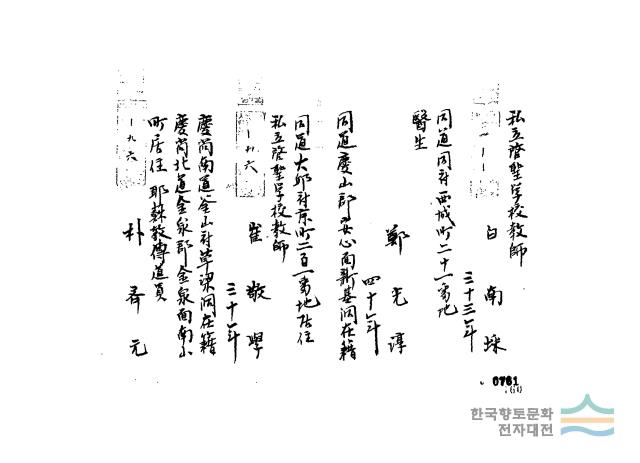 私立啓聖学校教師
一一一
白南埰
三十三年
同道同府西城町二十一番地
醫生
鄭光淳
四十年
同道慶山郡安心面新基洞在籍
同道大邱府京町二百一番地居住
私立啓聖学校教師
一九六
崔敬學
三十一年
慶尚南道釜山府草梁洞在籍
慶尚北道金泉郡金泉面南山
町居住 耶蘇教傳道員
一九六
朴齊元
0761
60
한국향토문화
전자대전